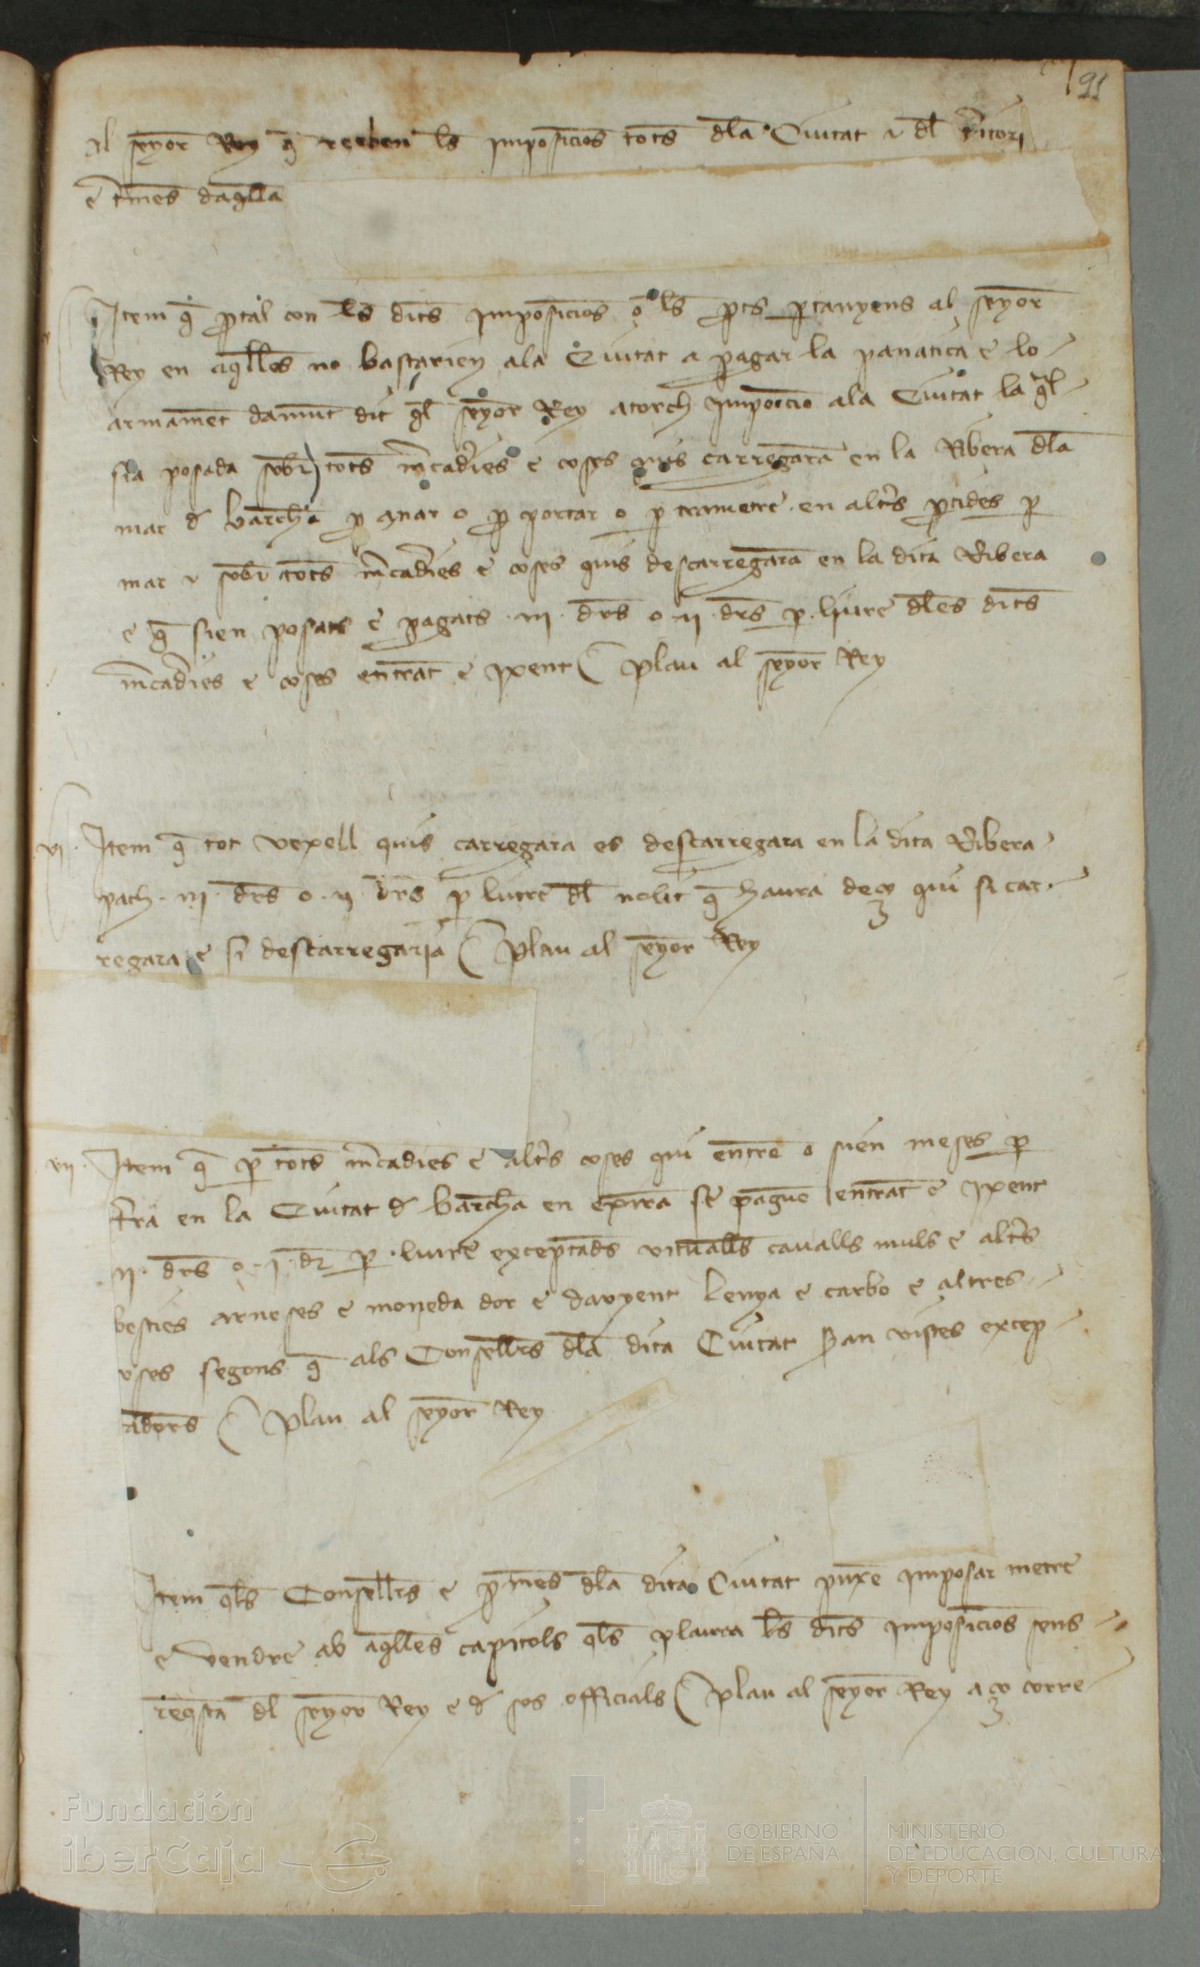 91
al senyor Rey q̄ reeben ls imposicions tots dla Ciutat e dl t̄ritori
e t̄mens daq̄lla
Item q̄ p tal con les dits imposicions o ls p̄ts p̱tanyens al senyor
Rey en aq̄lles no bastarien ala Ciutat a pagar la panatica e lo
armament damūt dit q̄l senyor Rey atorch imposicio ala Ciutat la q̄l
sia posada sobr̄ tots m̄cad̄ies e coses quis carregara en la Ribera dla
mar d barch̄a p anar o p portar o p trametre en alt̄s p̱tides p
mar e sobr̄ tots m̄cad̄ies e coses quis descarregara en la dita Ribera
e q̄ sien posats e pagats .iii. drs o .ii. drs p. liure dles dits
m̄cad̄ies e coses entrāt e ixent Plau al senyor Rey
vi. Item q̄ tot vexell quis carregara es descarregara en la dita Ribera
pach .iii. drs o .ii. drs p liure dl nolit q̄ haura deço qui si car
regara e si descarregaria Plau al senyor Rey
vii. Item q̄ p tots m̄cadies e alt̄s coses qui entre o sien meses p
t̄ra en la Ciutat d barch̄a en se pague entrāt e ixent
ii. drs o .i. dr̄ p. liure exceptads vitualls cavalls muls e alt̄s
besties arneses e moneda dor e dargent lenya e carbo e altres
coses segons q̄ als Consellers dla dita Ciutat s̄an vistes excep
tadors Plau al senyor Rey
Item q̄ls Consellers e p̄mens dla dita Ciutat puxē imposar metre
e vendre ab aq̄lles capitols q̄ls plaura ls dits imposicions sens
req̄sta dl senyor Rey e d sos officials Plau al senyor Rey aço corre
Fundación
iberCaja
GOBIERNO
DE ESPAÑA
MINISTERIO
DE EDUCACIÓN, CULTURA
Y DEPORTE